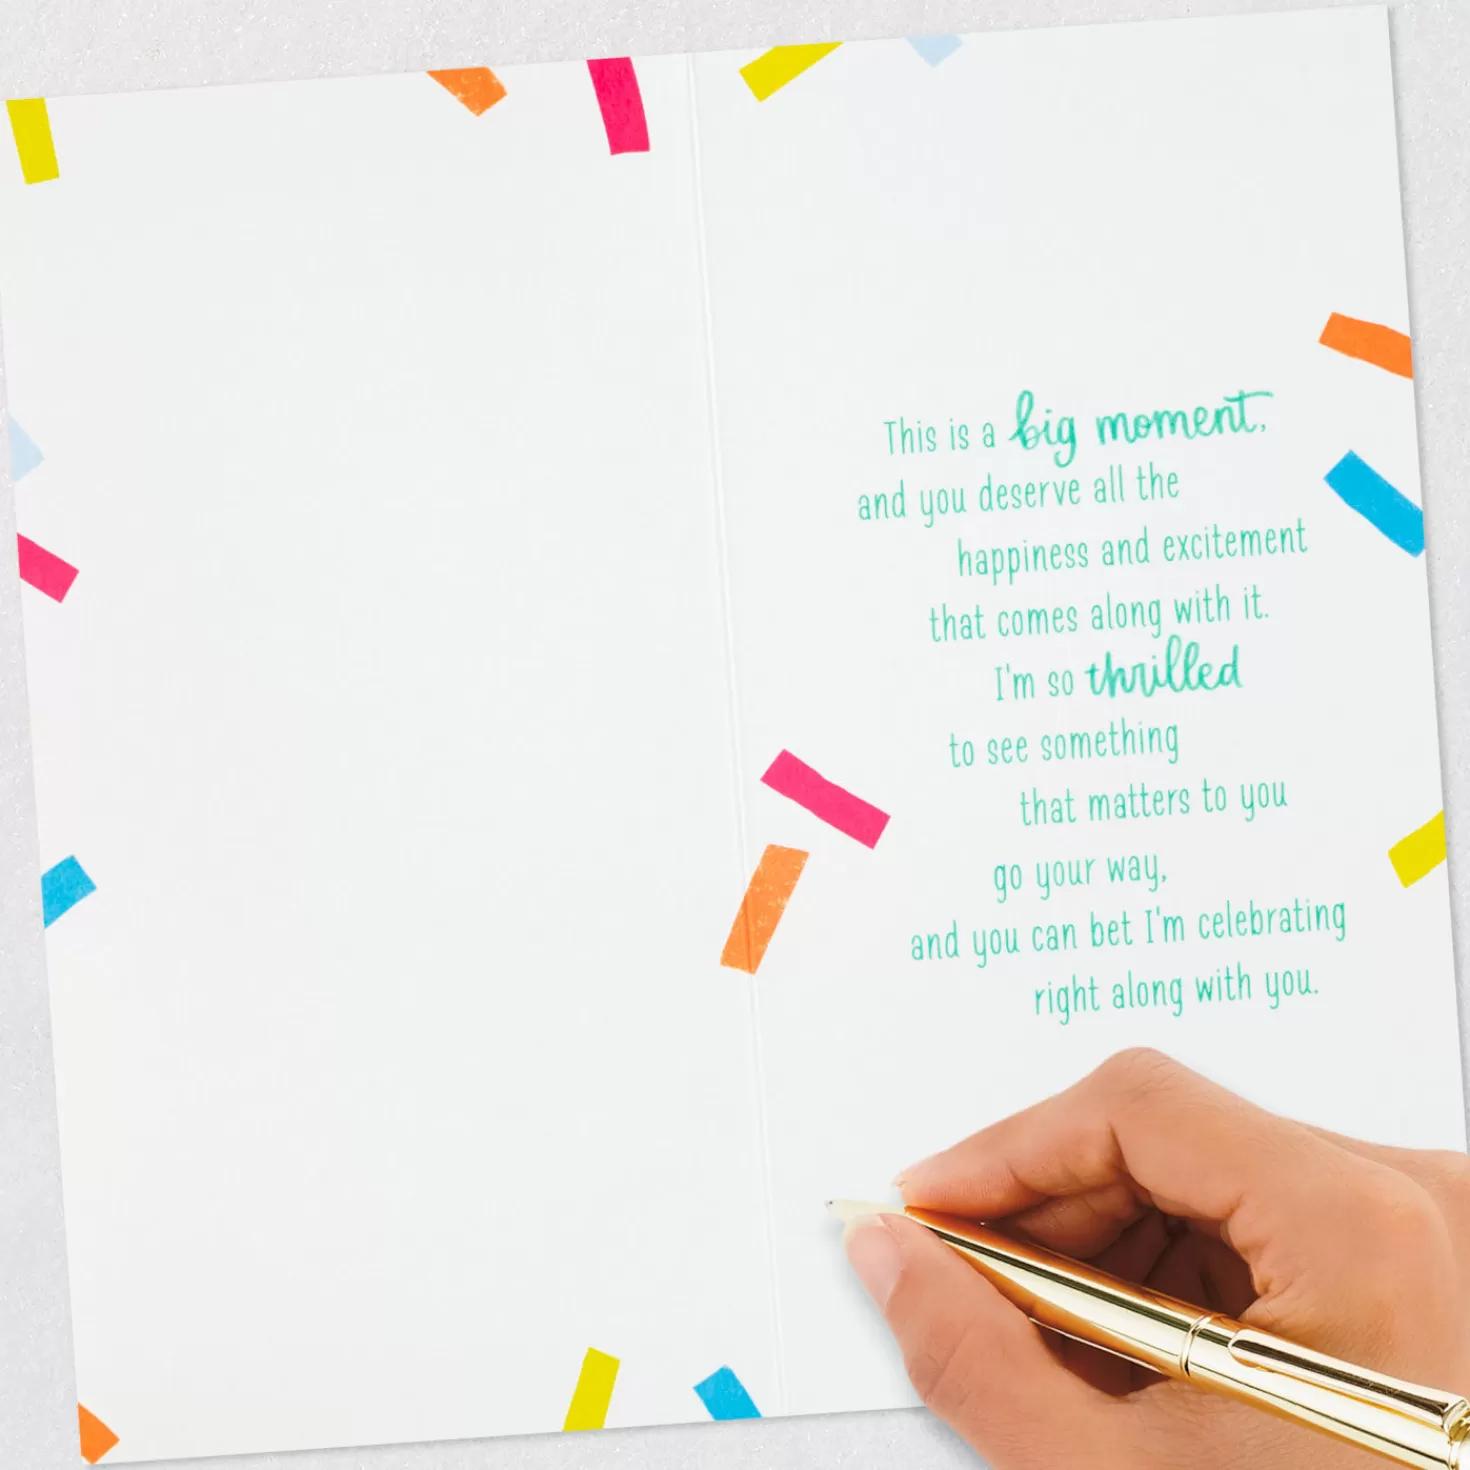 This is a big moment,
and you deserve all the
happiness and excitement
that comes along with it.
I'm so thrilled
to see something
that matters to you
go your way,
and you can bet I'm celebrating
right along with you.